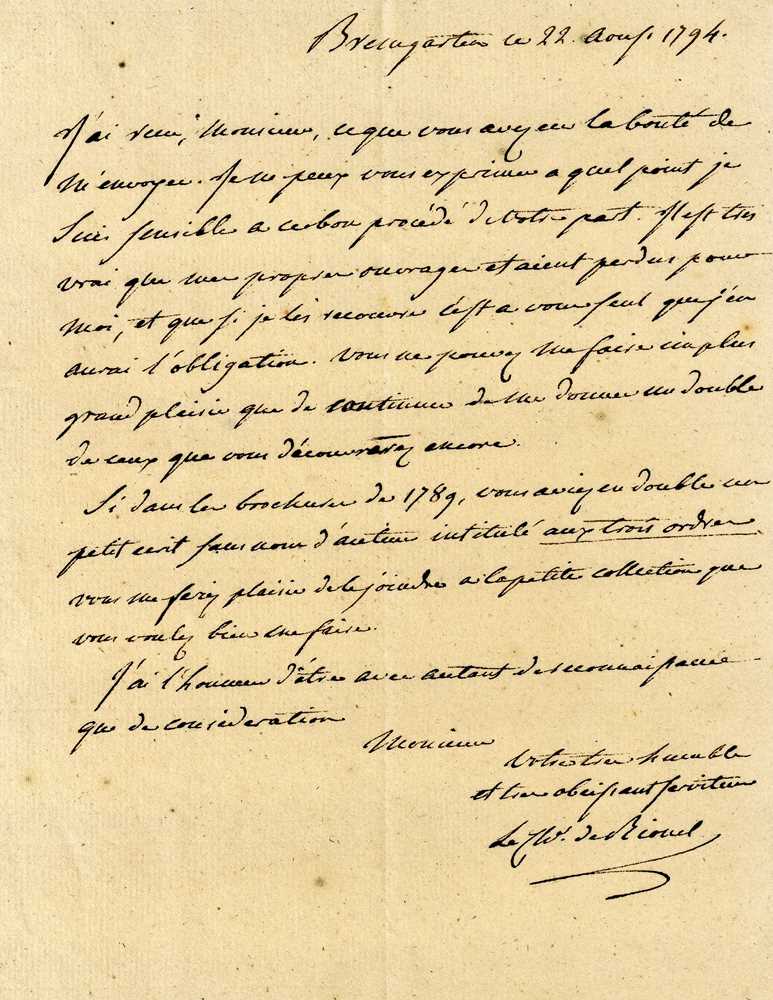 Bremgarten ce 22. Aous. 1794.
J'ai reçu, Monsieur, ce que vous avez eu la bonté de
m'envoyer. Je ne peux vous exprimer a quel point je
suis sensible a ce bon procédé de votre part. Il est très
vrai que mes propres ouvrages etaient perdus pour
moi, et que si je les recouvre c'est a vous seul que j'en
aurai l'obligation. Vous ne pouvez me faire un plus
grand plaisir que de continuer de me donner un double
de ceux que vous découvrirez encore.
Si dans les brochures de 1789, vous aviez en double un
petit ecrit sans nom d'auteur intitulé aux trois ordres
vous me feriez plaisir de le joindre a la petite collection que
vous voulez bien me faire.
J'ai l'honneur d'être avec autant de reconnaissance
que de consideration
Monsieur
Votre tres humble
et tres obeissant serviteur
Le Ch. de